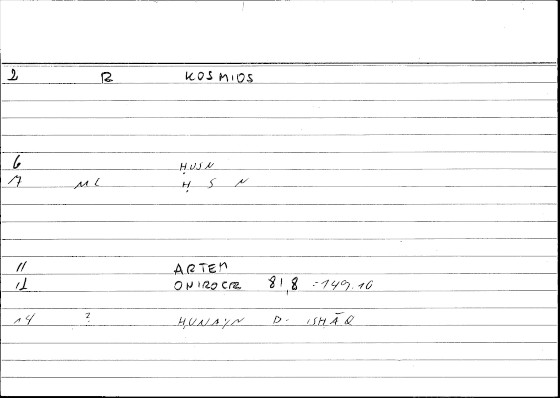 2 R KOSMIOS
6 ḤUSN
7 ML Ḥ S N
11 ARTEM
12 ONIROCR 81,8 = 149.10
14 ? ḤUNAYN B. ISḤĀQ